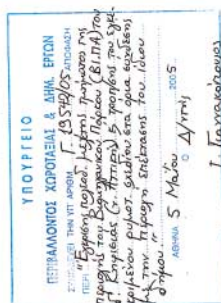 ΥΠΟΥΡΓΕΙΟ
ΠΕΡΙΒΑΛΛΟΝΤΟΣ ΧΩΡΟΤΑΞΙΑΣ & ΔΗΜ. ΕΡΓΩΝ
ΣΥΝΟΔΕΥΕΙ ΤΗΝ ΥΠ' ΑΡΙΘΜ. Γ. 19540/05 ΑΠΟΦΑΣΗ
ΠΕΡΙ "Έγκριση πολεοδ. μελέτης τμήματος της
περιοχής του Βιομηχανικού Πάρκου (ΒΙ.ΠΑ) του
Δ. Κηφισιάς (ν. Αττικής) & τροπ/ση του εγκε-
κριμένου ρυμοτ. σχεδίου στα όρια σύνδεσης
με την περιοχή επέκτασης του ίδιου
δήμου"
ΑΘΗΝΑ 5 Μαΐου 2005